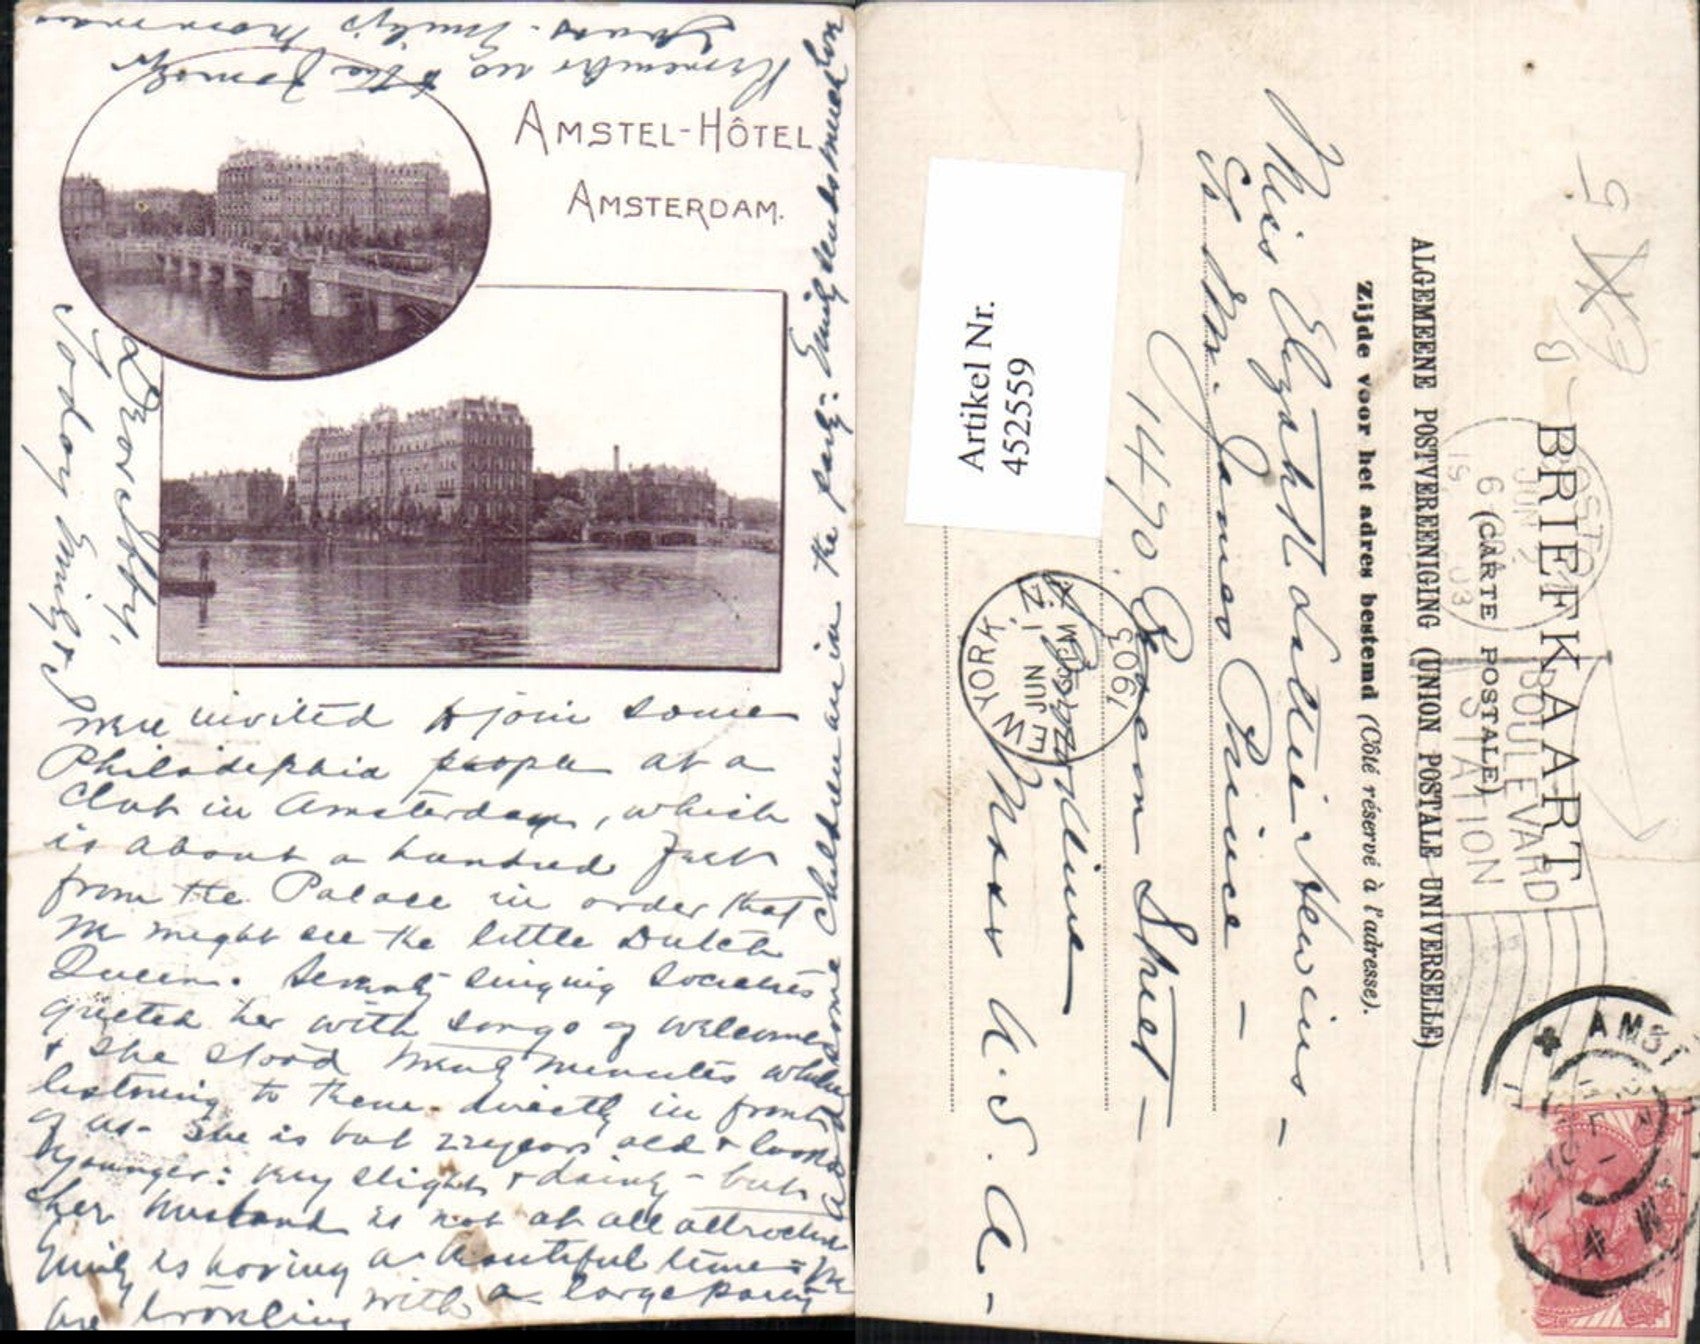 AMSTEL-HÔTEL
AMSTERDAM.
Dorothy,
Today Emily &
I were invited to join some
Philadelphia people at a
Club in Amsterdam, which
is about a hundred feet
from the Palace in order that
we might see the little Dutch
Queen. Seventy singing societies
greeted her with songs of welcome
& she stood many minutes while
listening to them directly in front
of us. She is but 22 years old & looks
younger: very slight & dainty - but
her husband is not at all attractive
Emily is having a beautiful time = We
are traveling with a large party
and some children are in the party: Emily sends much love
Remember us to the family
Emily's Mamma
Artikel Nr.
452559
BRIEFKAART
(CARTE POSTALE)
ALGEMEENE POSTVEREENIGING (UNION POSTALE UNIVERSELLE)
Zijde voor het adres bestemd (Côté réservé à l'adresse).
Miss Elizabeth Nevins -
℅ Mr. James Prince -
1470 Beacon Street -
Brookline
Mass U.S.A. -
NEW YORK
JUN
1903
BOSTON
JUN
6
03
BOULEVARD
STATION
AMST